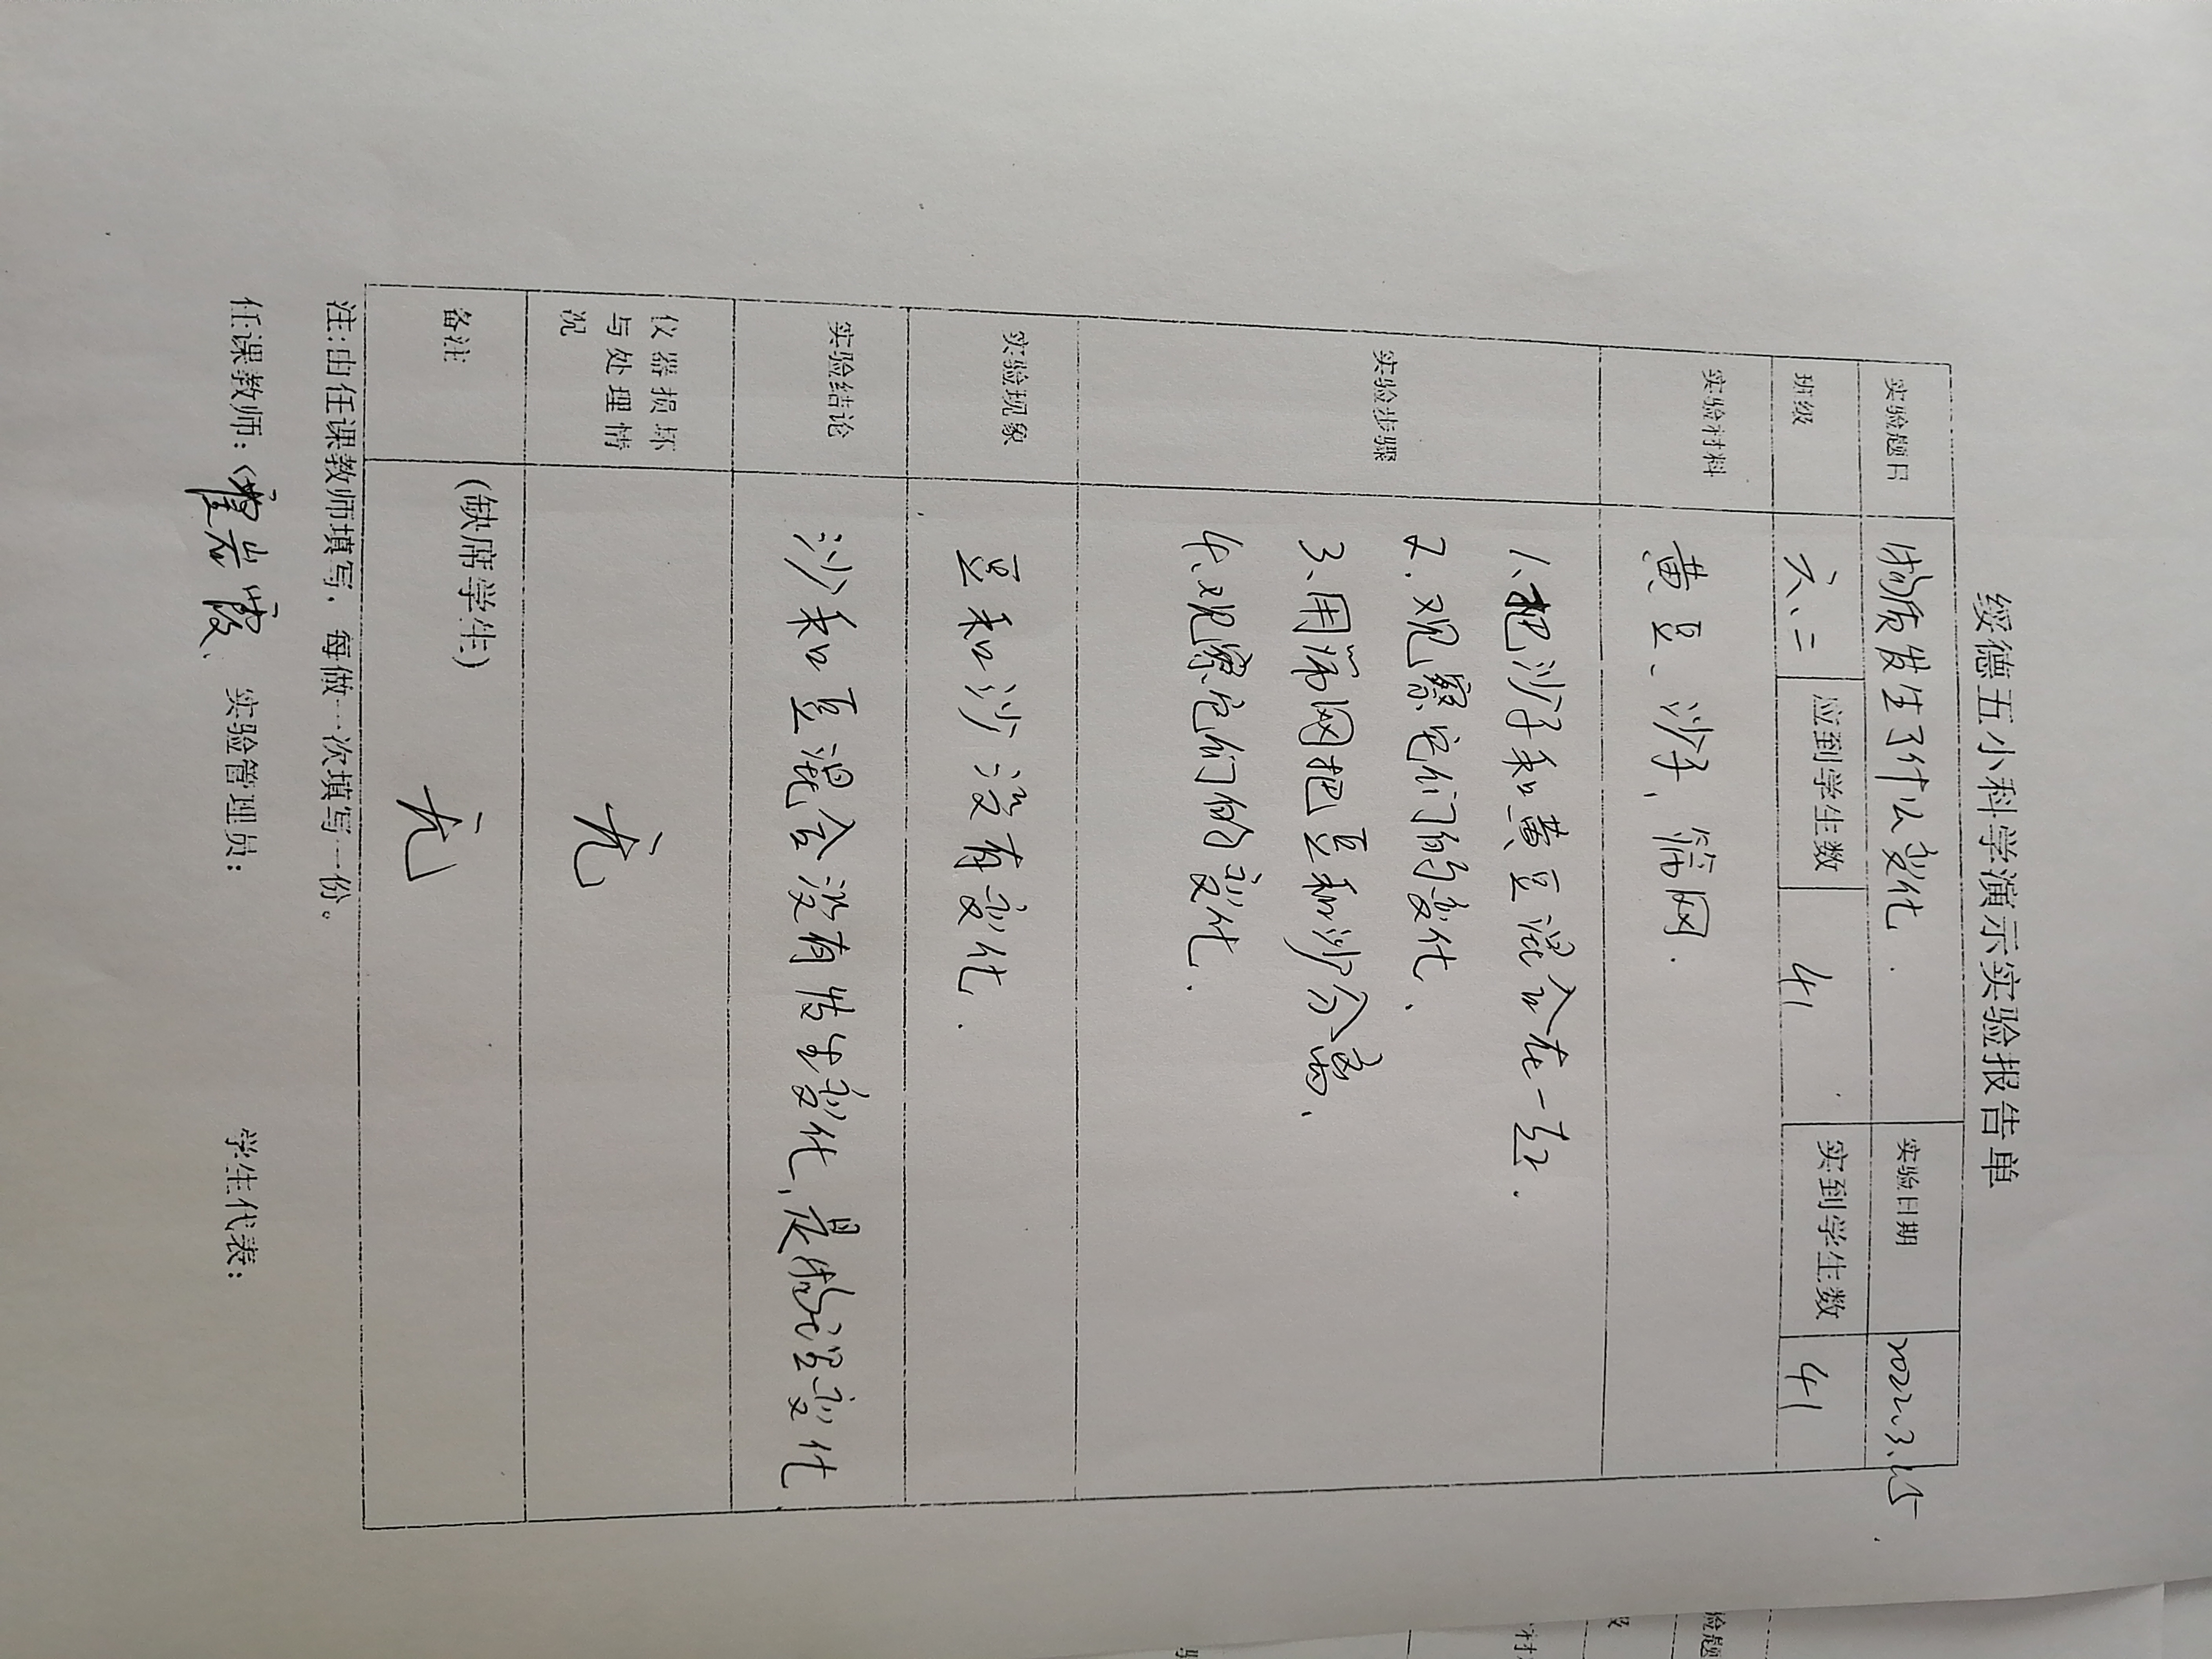 绥德五小科学演示实验报告单
实验题目 物质发生了什么变化. 实验日期 2022.3.15
班级 六、二 应到学生数 41 实到学生数 41
实验材料 黄豆、沙子、筛网.
实验步骤
1、把沙子和黄豆混合在一起.
2.观察它们的变化、
3、用筛网把豆和沙分离、
4、观察它们的变化.
实验现象 豆和沙没有变化.
实验结论 沙和豆混合没有发生变化,是物理变化
仪器损坏
与处理情
况
无
备注 (缺席学生)
无
注:由任课教师填写,每做一次填写一份。
任课教师: 霍岩霞、 实验管理员: 学生代表: